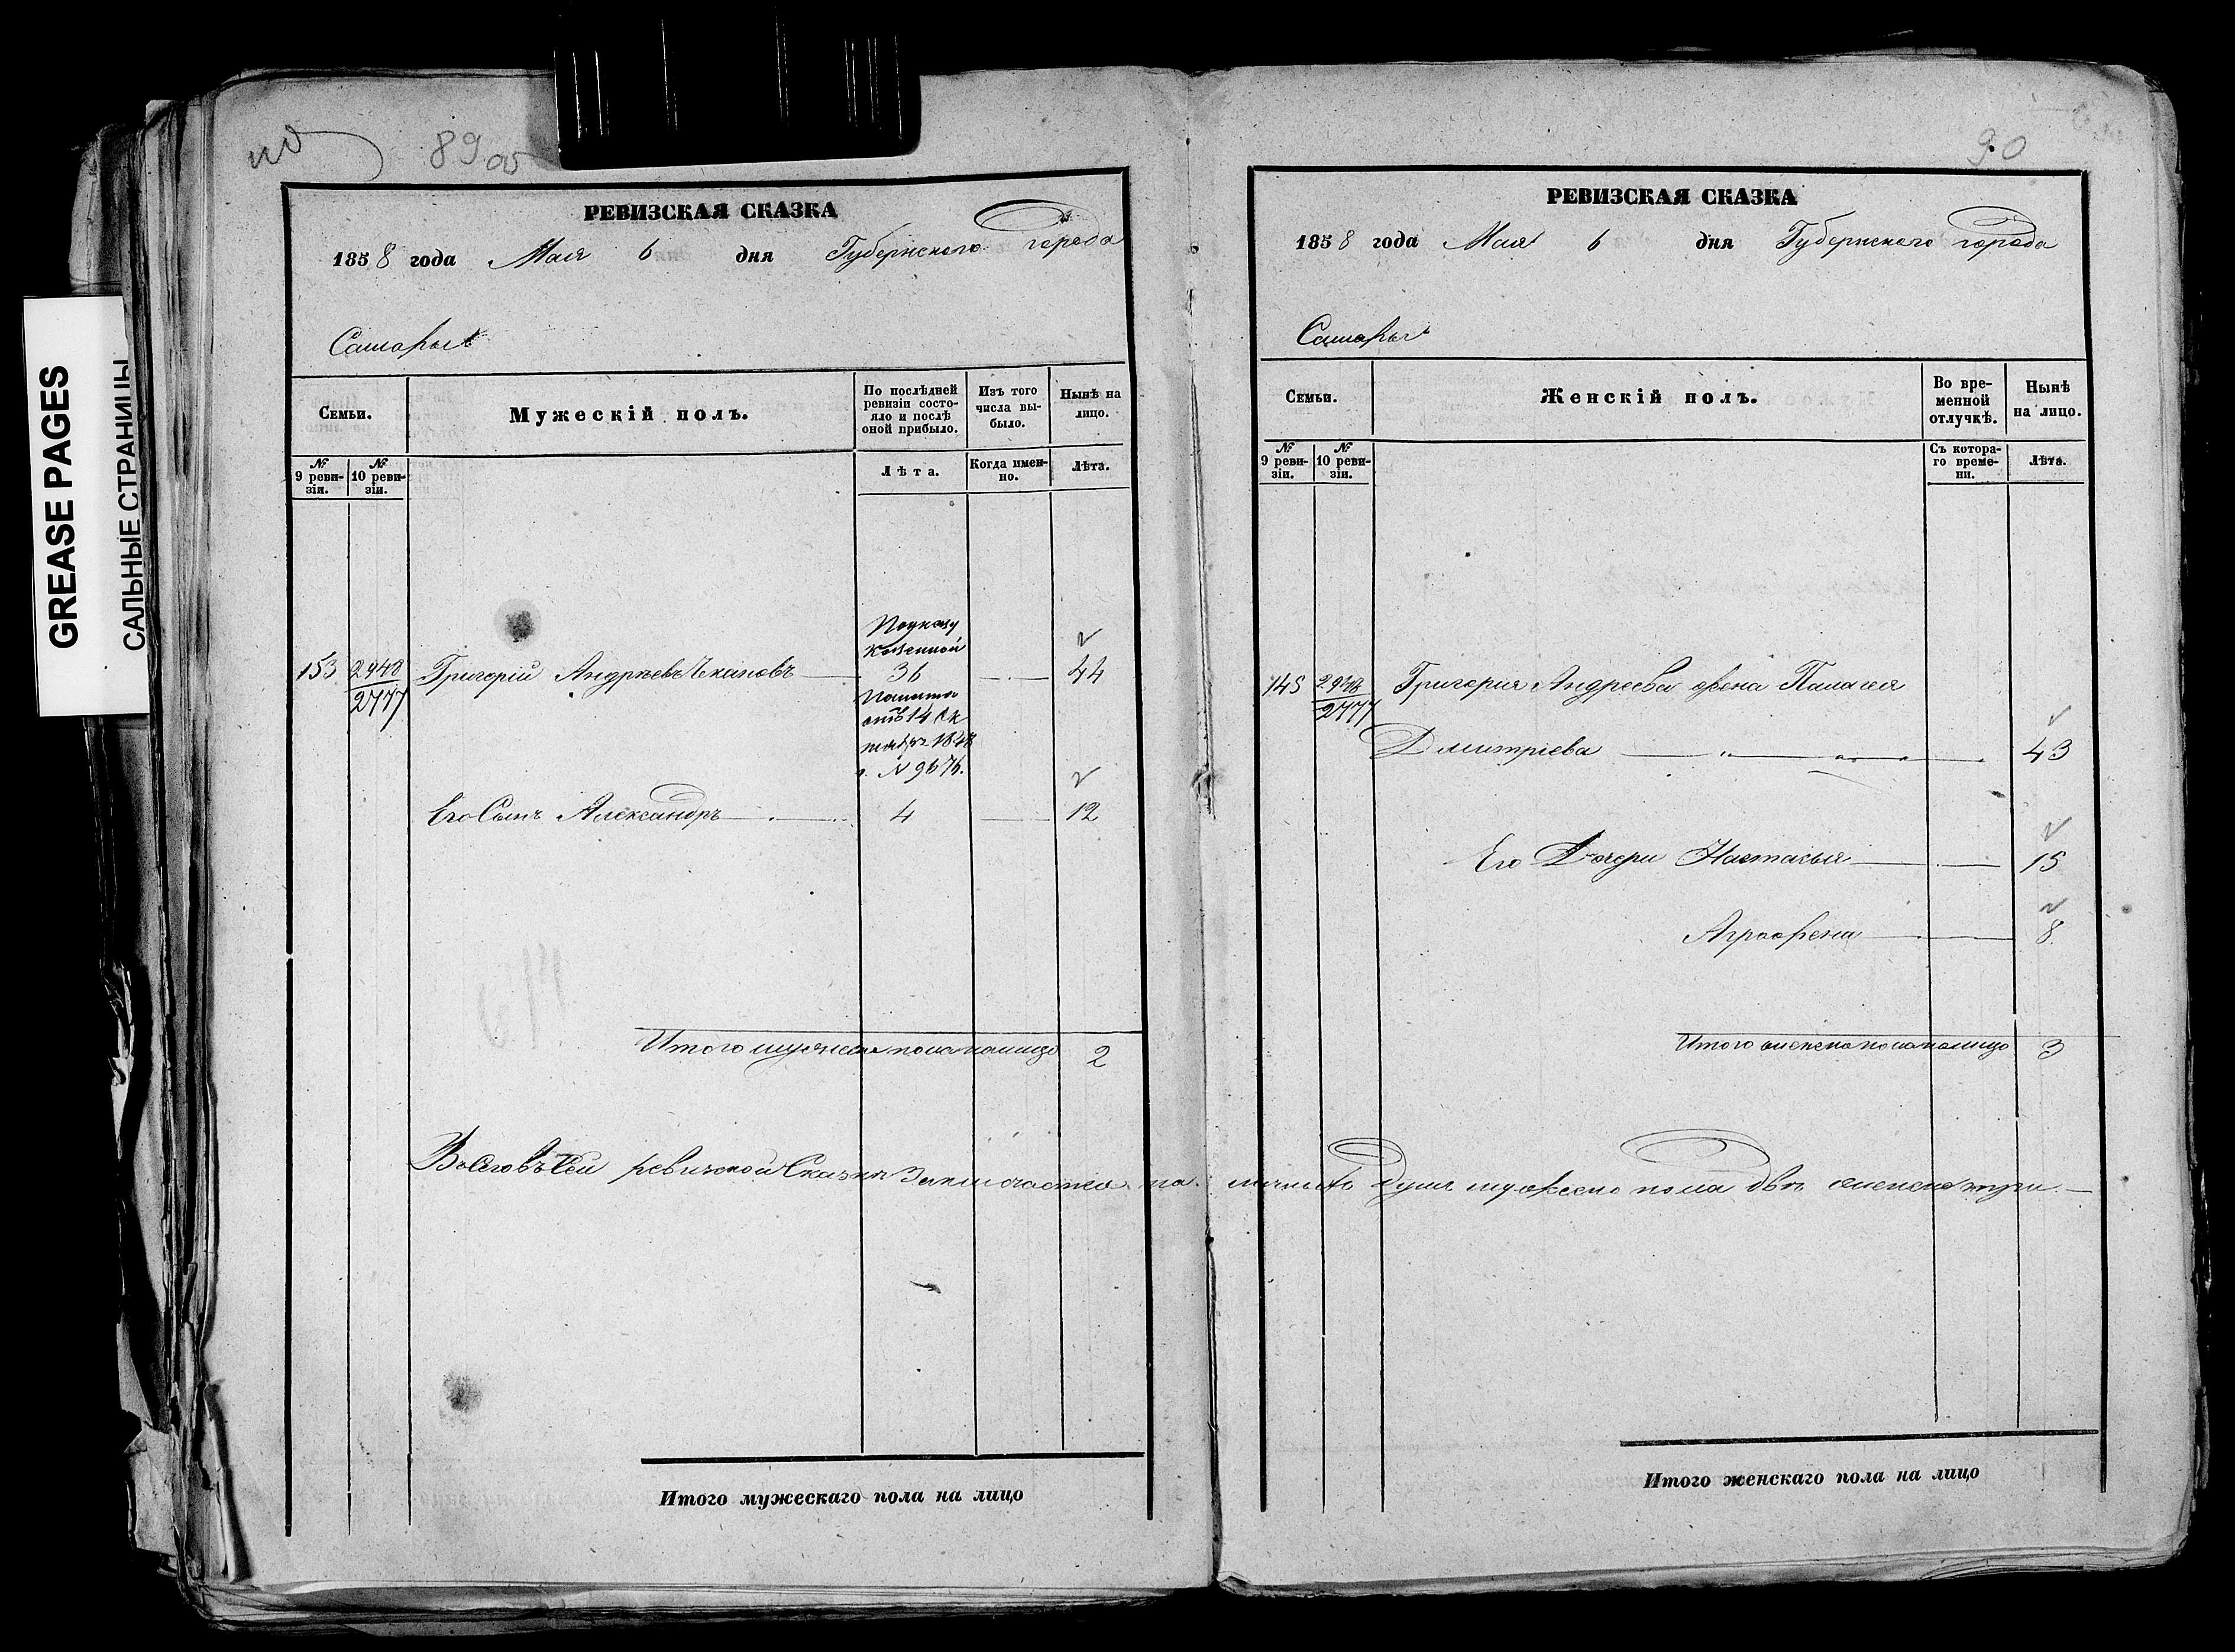 GREASE PAGES
САЛЬНЫЕ СТРАНИЦЫ
89 об
РЕВИЗСКАЯ СКАЗКА
1858 года Мая 6 дня Губернскаго города
Самары
Семьи.
Мужескій полъ.
По послѣдней ревизіи состояло и послѣ оной прибыло.
Изъ того числа выбыло.
Нынѣ на лицо.
№ 9 ревизіи.
№ 10 ревизіи.
Лѣта.
Когда именно.
Лѣта.
По указу
казенной
153 2948 Григорій Андреевъ 36 44
2777
Палаты
отъ 14 Ок
тября 1848
г. № 9676.
Его Сынъ Александръ 4 12
Итого мужеска пола налицо 2
Всего въ сей ревизской Сказке Заключается на
Итого мужескаго пола на лицо
90
РЕВИЗСКАЯ СКАЗКА
1858 года Мая 6 дня Губернскаго города
Самары
Семьи.
Женскій полъ.
Во временной отлучкѣ.
Нынѣ на лицо.
№ 9 ревизіи.
№ 10 ревизіи.
Съ котораго времени.
Лѣта.
145 2948 Григорія Андреева жена Палагея
2777
Дмитріева 43
Его Дочери Настасья 15
Аграфена 8
Итого женска пола налицо 3
душъ мужеска пола двѣ женска три
Итого женскаго пола на лицо